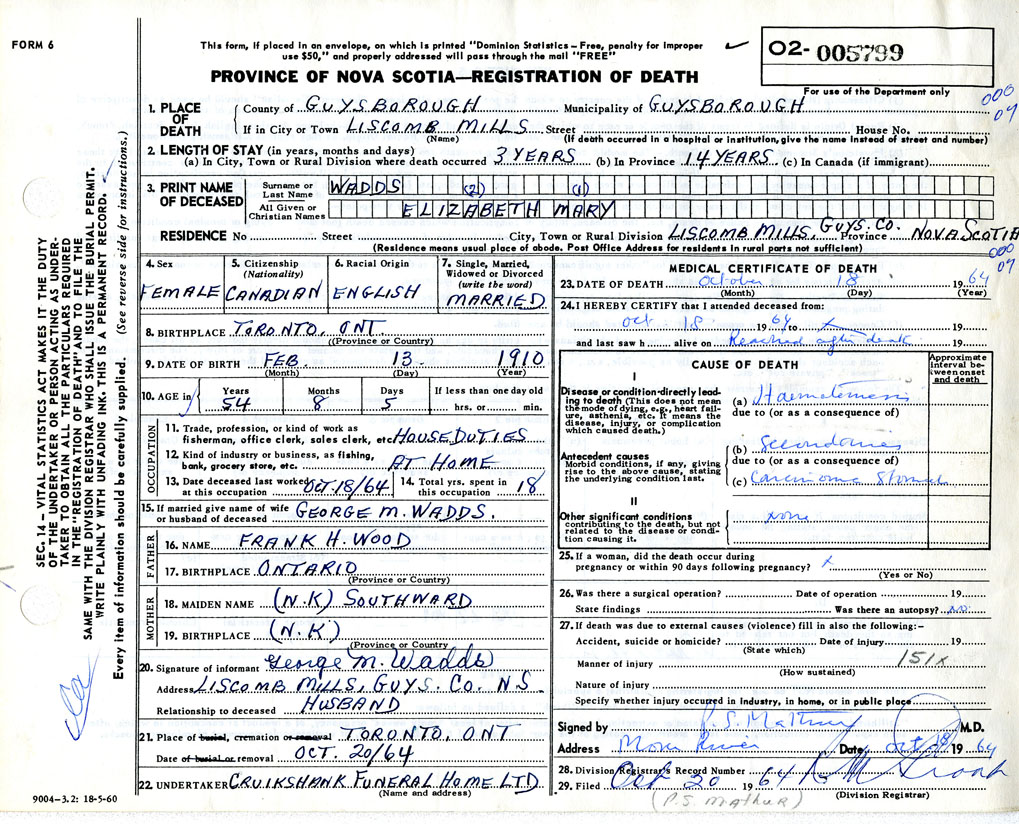 FORM 6
This form, if placed in an envelope, on which is printed "Dominion Statistics – Free, penalty for improper
use $50," and properly addressed will pass through the mail "FREE"
PROVINCE OF NOVA SCOTIA—REGISTRATION OF DEATH
O2- 005799
For use of the Department only
000
07
1. PLACE OF DEATH
County of GUYSBOROUGH Municipality of GUYSBOROUGH
If in City or Town LISCOMB MILLS Street House No.
(Name) (If death occurred in a hospital or institution, give the name instead of street and number)
2. LENGTH OF STAY (in years, months and days)
(a) In City, Town or Rural Division where death occurred 3 YEARS (b) In Province 14 YEARS (c) In Canada (if immigrant)
3. PRINT NAME OF DECEASED
Surname or Last Name WADDS (2) (1)
All Given or Christian Names ELIZABETH MARY
RESIDENCE No Street City, Town or Rural Division LISCOMB MILLS GUYS. CO. Province NOVA SCOTIA
(Residence means usual place of abode. Post Office Address for residents in rural parts not sufficient)
000
07
4. Sex
FEMALE
5. Citizenship
(Nationality)
CANADIAN
6. Racial Origin
ENGLISH
7. Single, Married, Widowed or Divorced
(write the word)
MARRIED
8. BIRTHPLACE TORONTO, ONT.
((Province or Country)
9. DATE OF BIRTH FEB. 13. 1910
(Month) (Day) (Year)
10. AGE in Years Months Days If less than one day old
54 8 5 hrs. or min.
OCCUPATION
11. Trade, profession, or kind of work as
fisherman, office clerk, sales clerk, etc. HOUSE DUTIES
12. Kind of industry or business, as fishing,
bank, grocery store, etc. AT HOME
13. Date deceased last worked at this occupation OCT. 18/64 14. Total yrs. spent in this occupation 18
15. If married give name of wife
or husband of deceased GEORGE M. WADDS.
FATHER
16. NAME FRANK H. WOOD
17. BIRTHPLACE ONTARIO
(Province or Country)
MOTHER
18. MAIDEN NAME (N.K) SOUTHWARD
19. BIRTHPLACE (N.K)
(Province or Country
20. Signature of informant George M. Wadds
Address LISCOMB MILLS, GUYS. CO. NS
Relationship to deceased HUSBAND
21. Place of burial, cremation or removal TORONTO, ONT
Date of burial or removal OCT. 20/64
22. UNDERTAKER CRUIKSHANK FUNERAL HOME LTD.
(Name and address)
MEDICAL CERTIFICATE OF DEATH
23. DATE OF DEATH October 18 1964
(Month) (Day) (Year)
24. I HEREBY CERTIFY that I attended deceased from:
oct 18 1964 to 19
and last saw h alive on Reached after death 19
CAUSE OF DEATH
Approximate interval between onset and death
I
Disease or condition directly leading to death (This does not mean the mode of dying, e.g., heart failure, asthenia, etc. It means the disease, injury, or complication which caused death.)
(a) Haematemesis
due to (or as a consequence of)
Antecedent causes
Morbid conditions, if any, giving rise to the above cause, stating the underlying condition last.
(b)
due to (or as a consequence of)
(c) Carcinoma Stomach
II
Other significant conditions contributing to the death, but not related to the disease or condition causing it.
none
25. If a woman, did the death occur during
pregnancy or within 90 days following pregnancy? x
(Yes or No)
26. Was there a surgical operation? Date of operation 19
State findings Was there an autopsy? No
27. If death was due to external causes (violence) fill in also the following:–
Accident, suicide or homicide? Date of injury 19
(State which)
151x
Manner of injury
(How sustained)
Nature of injury
Specify whether injury occurred in industry, in home, or in public place
Signed by P. S. Mathur M.D.
Address Moser River Date Oct 18 1964
28. Division Registrar's Record Number
29. Filed Oct 20 1964
(Division Registrar)
(P.S. Mathur)
SEC. 14 – VITAL STATISTICS ACT MAKES IT THE DUTY
OF THE UNDERTAKER OR PERSON ACTING AS UNDER-
TAKER TO OBTAIN ALL THE PARTICULARS REQUIRED
IN THE "REGISTRATION OF DEATH" AND TO FILE THE
SAME WITH THE DIVISION REGISTRAR WHO SHALL ISSUE THE BURIAL PERMIT.
WRITE PLAINLY WITH UNFADING INK. THIS IS A PERMANENT RECORD.
Every item of information should be carefully supplied. (See reverse side for instructions.)
9004–3.2: 18-5-60